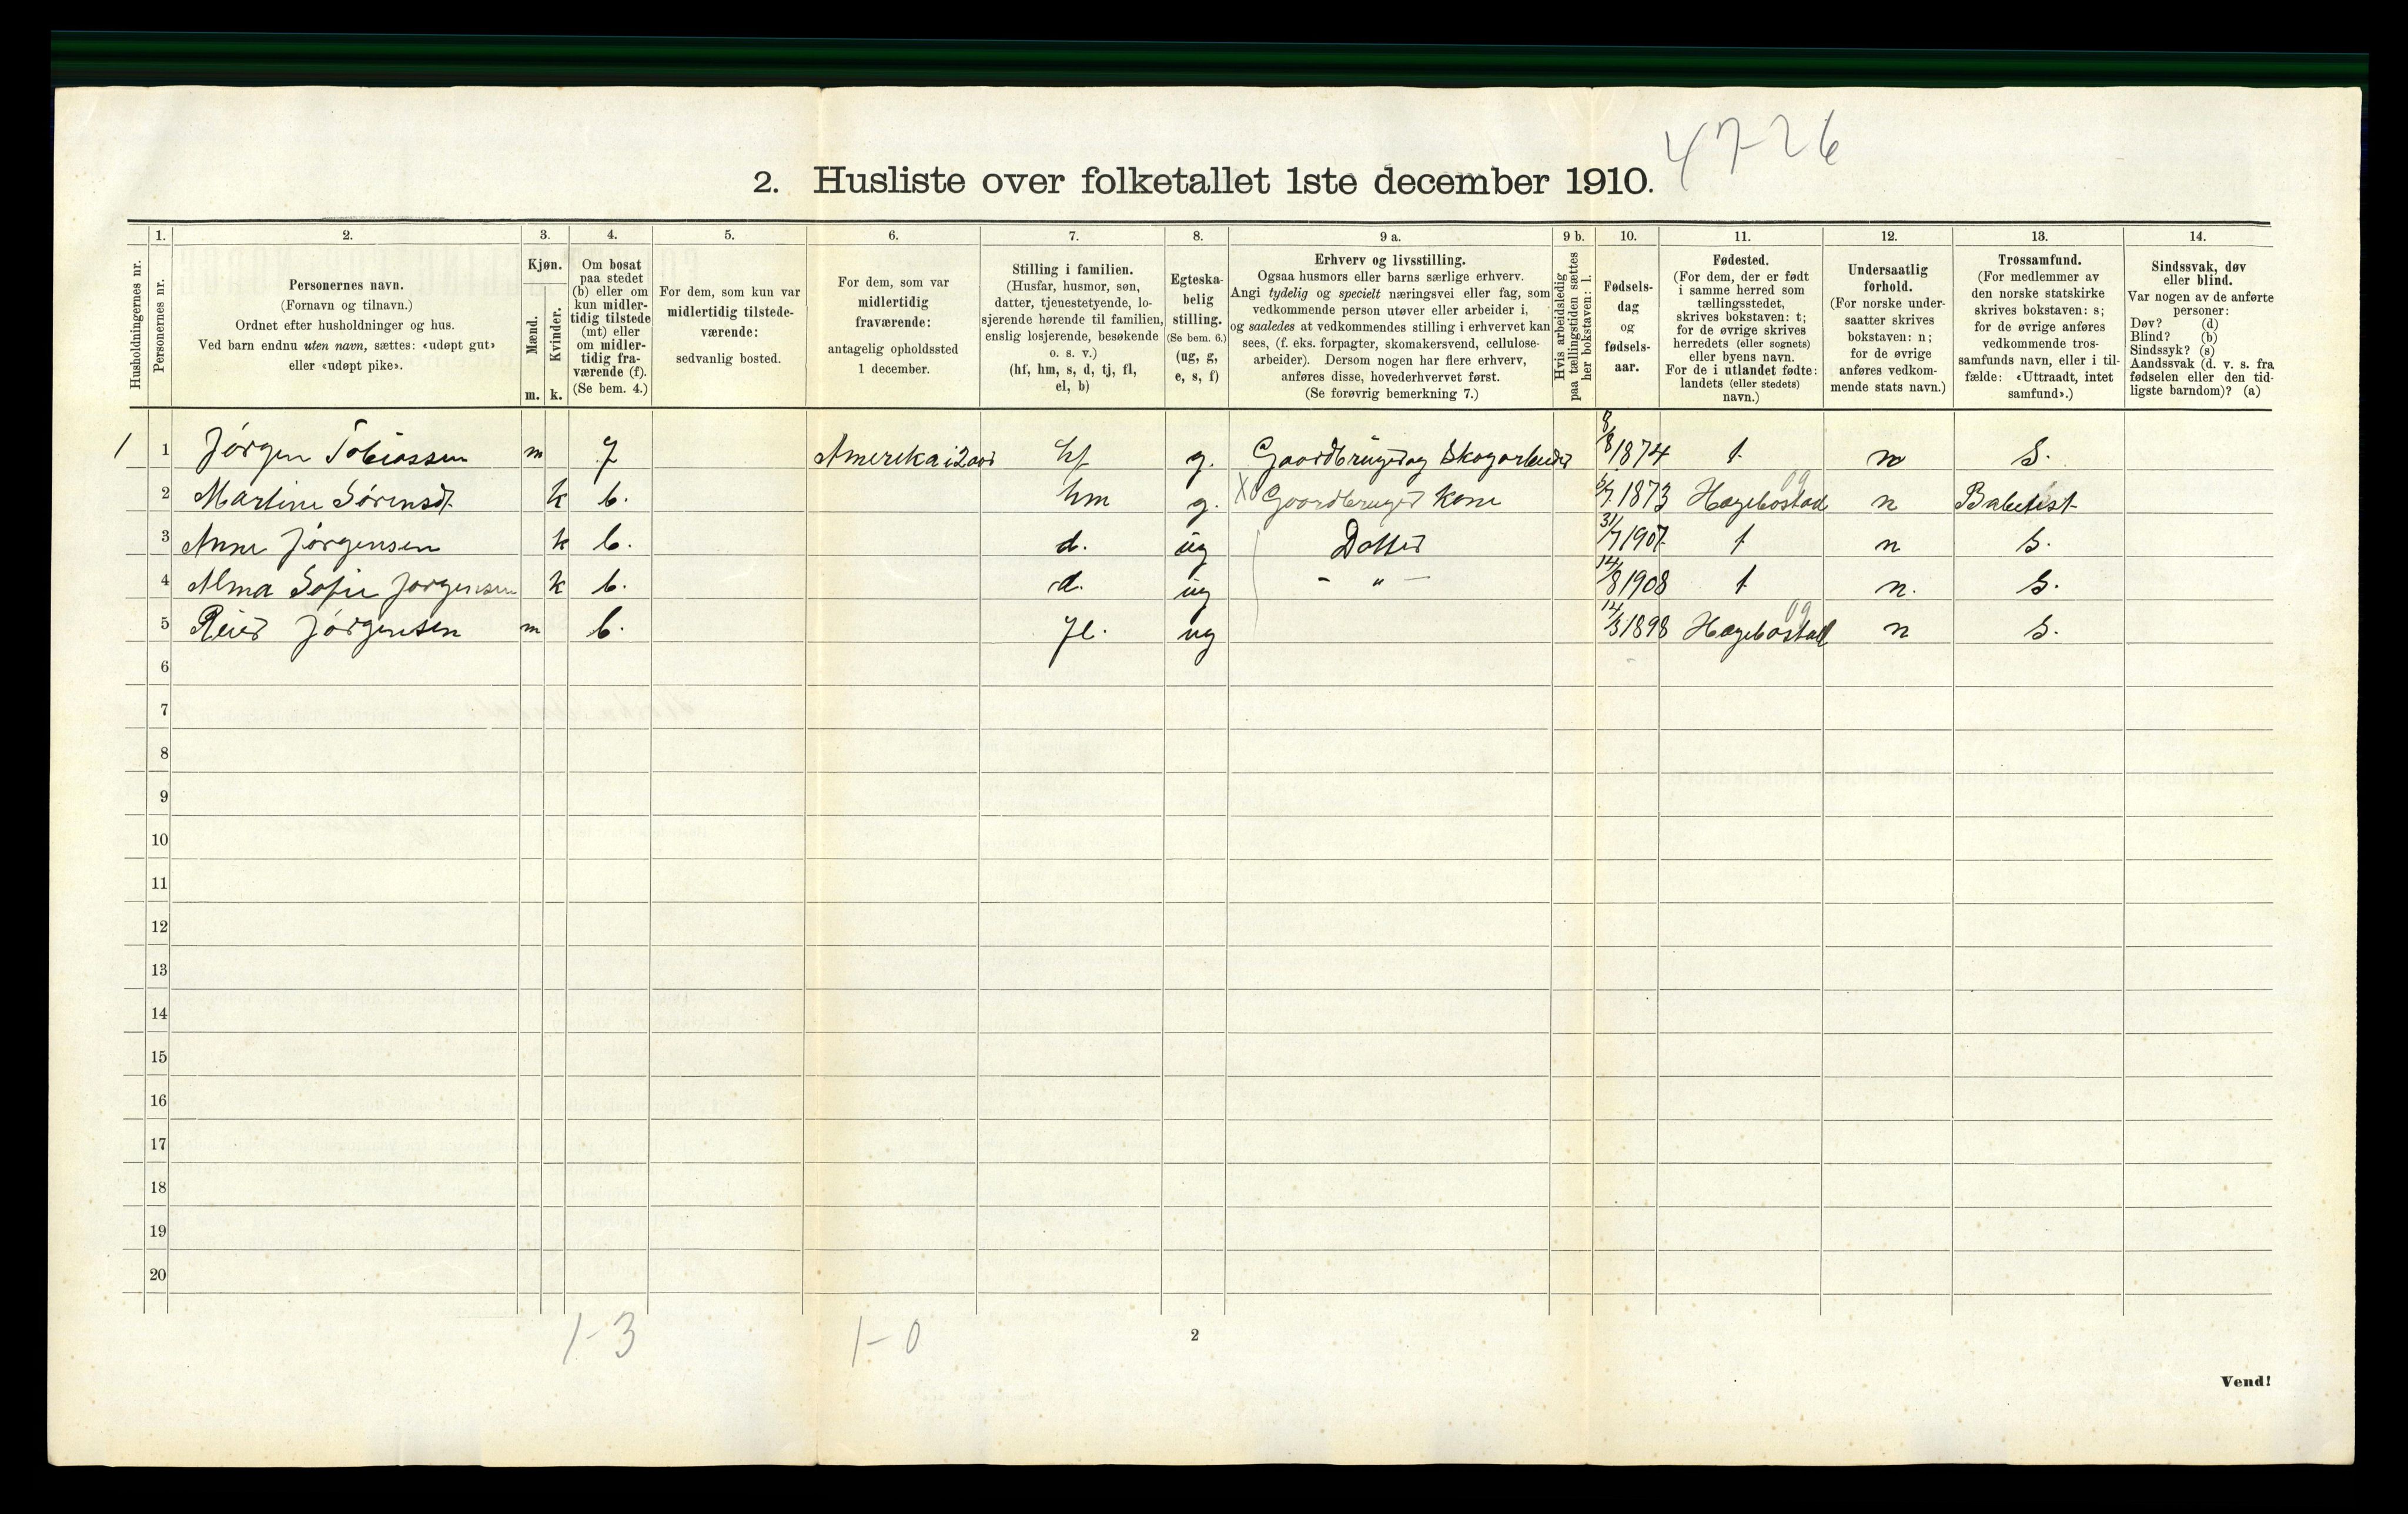 47-26
2. Husliste over folketallet 1ste december 1910.
Husholdningernes nr.
1.
Personernes nr.
2.
Personernes navn.
(Fornavn og tilnavn.)
Ordnet efter husholdninger og hus.
Ved barn endnu uten navn, sættes: «udøpt gut»
eller «udøpt pike».
3.
Kjøn.
Mænd.
Kvinder.
m. k.
4.
Om bosat
paa stedet
(b) eller om
kun midler-
tidig tilstede
(mt) eller
om midler-
tidig fra-
værende (f).
(Se bem. 4.)
5.
For dem, som kun var
midlertidig tilstede-
værende:
sedvanlig bosted.
6.
For dem, som var
midlertidig
fraværende:
antagelig opholdssted
1 december.
7.
Stilling i familien.
(Husfar, husmor, søn,
datter, tjenestetyende, lo-
sjerende hørende til familien,
enslig losjerende, besøkende
o. s. v.)
(hf, hm, s, d, tj, fl,
el, b)
8.
Egteska-
belig
stilling.
(Se bem. 6.)
(ug, g,
e, s, f)
9 a.
Erhverv og livsstilling.
Ogsaa husmors eller barns særlige erhverv.
Angi tydelig og specielt næringsvei eller fag, som
vedkommende person utøver eller arbeider i,
og saaledes at vedkommendes stilling i erhvervet kan
sees, (f. eks. forpagter, skomakersvend, cellulose-
arbeider). Dersom nogen har flere erhverv,
anføres disse, hovederhvervet først.
(Se forøvrig bemerkning 7.)
9 b.
Hvis arbeidsledig
paa tællingstiden sættes
her bokstaven: l.
10.
Fødsels-
dag
og
fødsels-
aar.
11.
Fødested.
(For dem, der er født
i samme herred som
tællingsstedet,
skrives bokstaven: t;
for de øvrige skrives
herredets (eller sognets)
eller byens navn.
For de i utlandet fødte:
landets (eller stedets)
navn.)
12.
Undersaatlig
forhold.
(For norske under-
saatter skrives
bokstaven: n;
for de øvrige
anføres vedkom-
mende stats navn.)
13.
Trossamfund.
(For medlemmer av
den norske statskirke
skrives bokstaven: s;
for de øvrige anføres
vedkommende tros-
samfunds navn, eller i til-
fælde: «Uttraadt, intet
samfund».)
14.
Sindssvak, døv
eller blind.
Var nogen av de anførte
personer:
Døv? (d)
Blind? (b)
Sindssyk? (s)
Aandssvak (d. v. s. fra
fødselen eller den tid-
ligste barndom)? (a)
1 1 Jørgen Tobiassen m f Amerika i 2 aar hf g. Gaardbruger og Skogarbeider 8/8 1874 t n S.
2 Martine Sørensdt. k b. hm g. Gaardbruger Kone 1873 Hægebostad 09 n Babtist
3 Anne Jørgensen k b. d. ug Datter 31/7 1907 t n S.
4 Alma Sofie Jørgensen k b. d. ug - " - 14/8 1908 t n. S.
5 Reier Jørgensen m b. fl. ug 12/3 1898 Hægebostad 09 n S.
6
7
8
9
10
11
12
13
14
15
16
17
18
19
20
1-3 1-0
2
Vend!